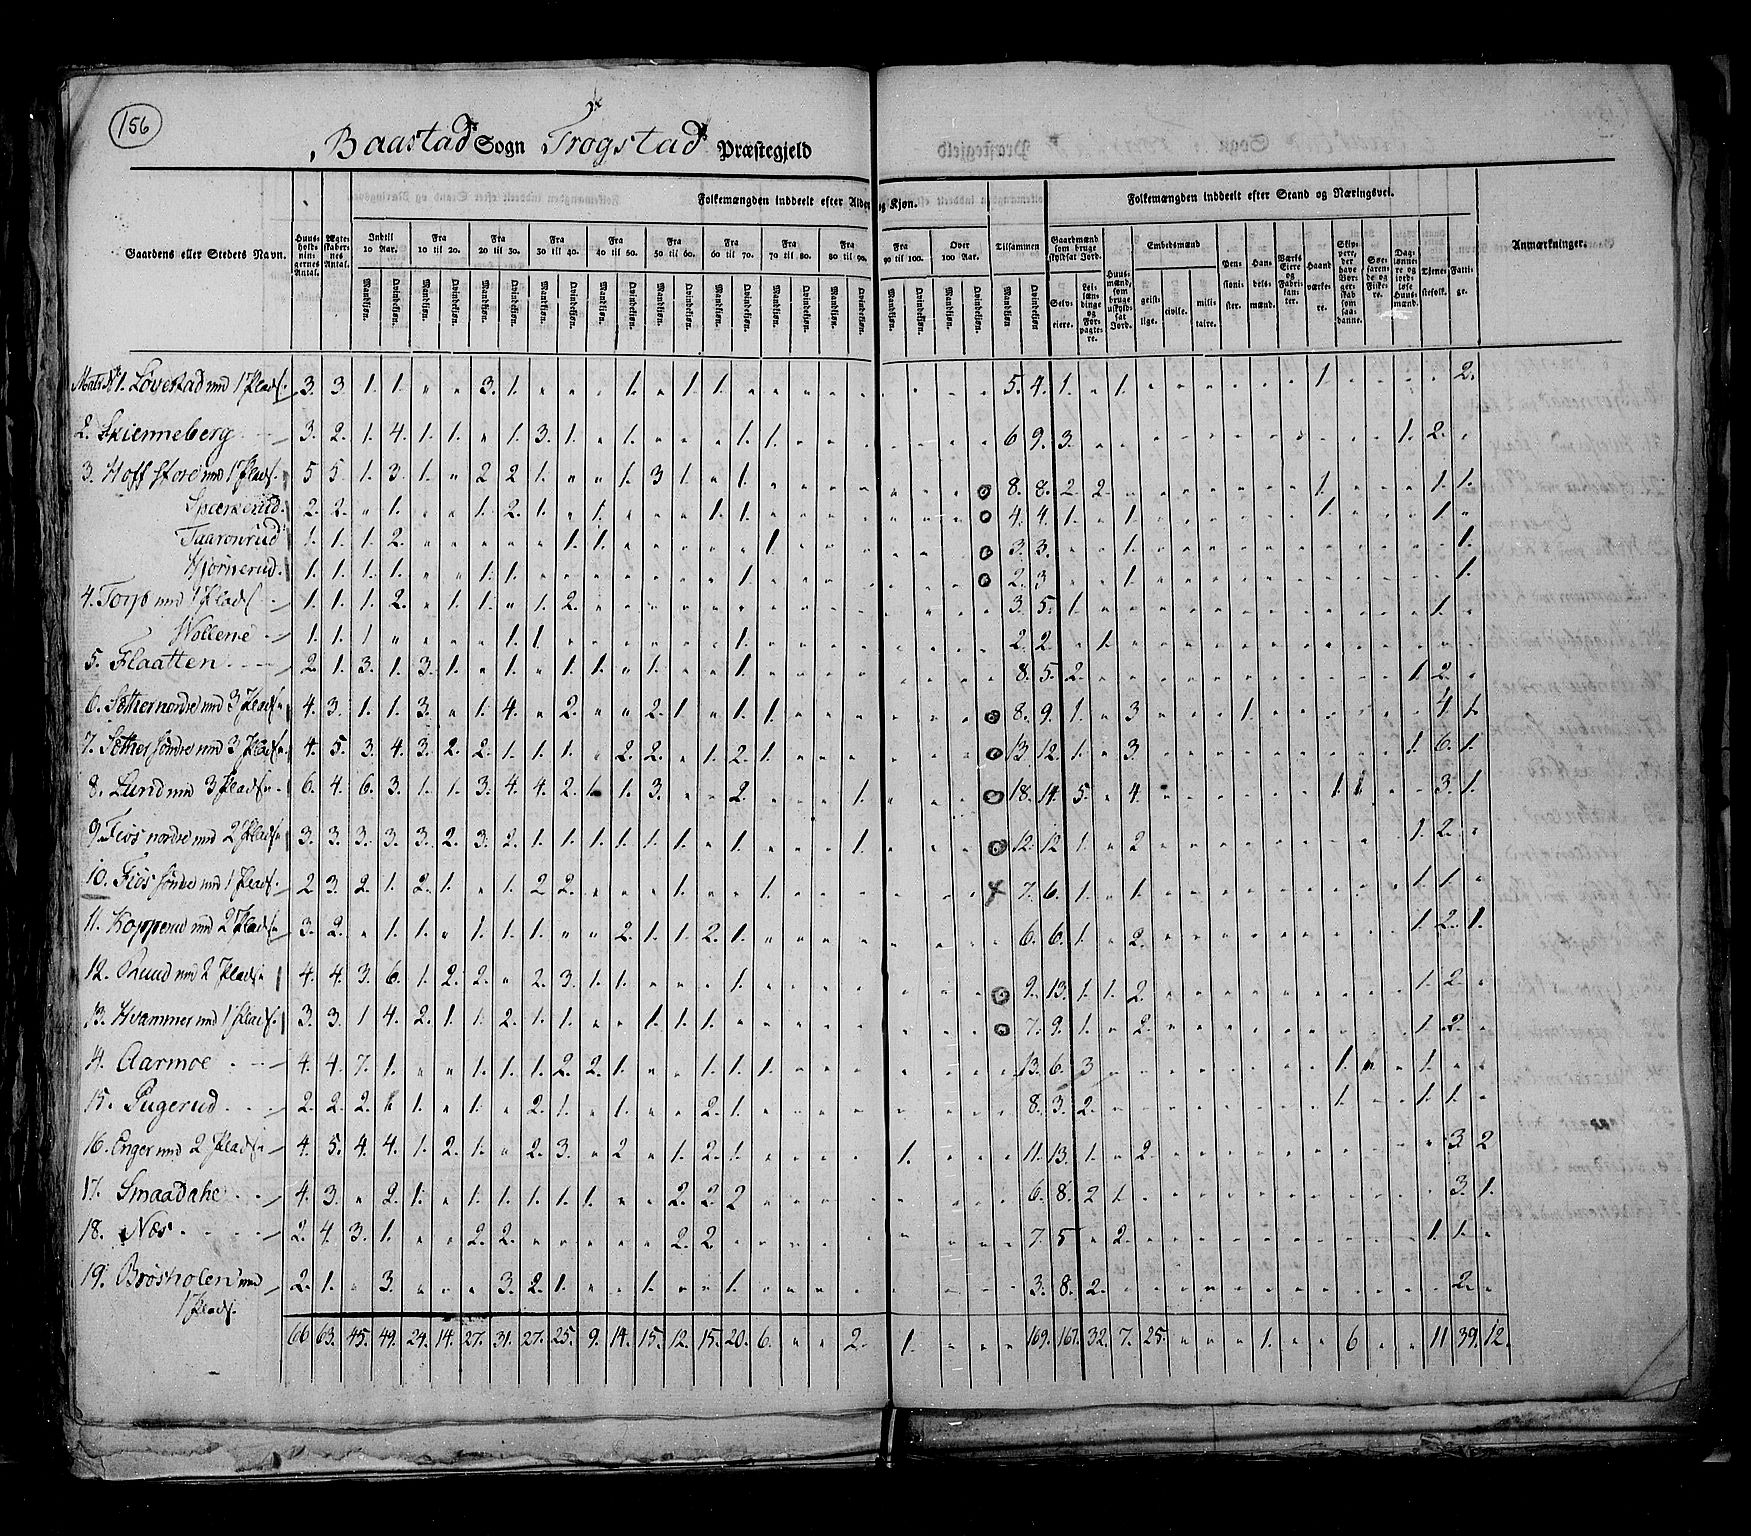 156
Baastad Sogn Trøgstad Præstegjeld
Folkemængden inddeelt efter Alder og Kjøn.
Folkemængden inddeelt efter Stand og Næringsvei.
Gaardens eller Stedets Navn.
Huus-holdnin-gernes Antal.
Ægte-skaber-nes Antal.
Indtil 10 Aar.
Fra 10 til 20.
Fra 20 til 30.
Fra 30 til 40.
Fra 40 til 50.
Fra 50 til 60.
Fra 60 til 70.
Fra 70 til 80.
Fra 80 til 90.
Fra 90 til 100.
Over 100 Aar.
Tilsammen
Gaardmænd som bruge skyldsat Jord.
Embedsmænd
Anmærkninger.
Mandkjøn. Qvindekjøn. Mandkjøn. Qvindekjøn. Mandkjøn. Qvindekjøn. Mandkjøn. Qvindekjøn. Mandkjøn. Qvindekjøn. Mandkjøn. Qvindekjøn. Mandkjøn. Qvindekjøn. Mandkjøn. Qvindekjøn. Mandkjøn. Qvindekjøn. Mandkjøn. Qvindekjøn. Mandkjøn. Qvindekjøn. Mandkjøn. Qvindekjøn.
Selv-eiere.
Lei-læn-dinge og For-pagte-re.
Huus-mænd, som bruge uskyldsat Jord.
geist-lige.
civile.
mili-taire.
Pen-sioni-ster.
Han-dels-mænd.
Værks Eiere og Fabri-kan-ter.
Haand-værke-re.
Skip-pere, der have Bor-ger-skab som saa-danne.
Søe-farende og Fiske-re.
Dag-lønne-re og jordløse Huus-mænd.
Tjene-stefolk.
Fatti-ge.
1. Løvestad med 1 Plads. 3. 3. 1. 1. " " 3. 1. " " " 1. " 1. 1. 5. 4. 1. " 1. 1. 2.
2. Skienneberg 3. 2. 1. 4. 1. 1. " 1. 3. 1. " 1. " " " 1. 1. 6 9. 3. 1. 2.
3. Hoff Store med 1 Plads. 5 5 1. 3. 1. " 2 2 1. " " 1. 3 1. " 1. 8. 8. 2. 2. 1. 1. 1.
2. 2. " 1. " " 1. 2. 1. " 1. " " " 1. 1. 4. 4. 1. " 1. 1. 1.
Taaronrud 1. 1. 1. 2. 1. 1. 1. 3. 3. 1. 1.
Hjørnerud. 1. 1. 1. 1. " " 1. 1. 1. 2. 3 1. 1.
4. Torp med 1 Plads 1. 1. 1. 2. " 1. 1. " 1. 2. 3. 5. 1. 1.
1. 1. 1 " " " " 1. 1. 1. 2. 2. " 1.
5. Flaatten 2. 1. 3. 1. 3. 1. " 1. " 1. 1. " 1. " " 1. 8. 5. 2. 1. 2.
6. Sæther nordre med 3 Pladse 4. 3. 1. 1. 3. " 1. 4. " 2. " " 2. 1 " 1. 1. 8. 9. 1. " 3 1. 4. 1.
7. Sæther søndre med 3 Pladse 4. 5. 3. 4. 3. 2. 2. 1. 1. 1. " 2. 2. " 1. 2. 1. 13. 12. 1. " 3. 1. 6. 1.
8. Lund med 3 Pladse 6. 4. 6. 3. 1. 1. 3. 4. 4. 2. 1. 1. 3. " " 2. 1. 18. 14. 5. " 4. 1. 1. 3. 1.
9. Fiøs nordre med 2 Pladse 3. 3. 3. 3. 3. 2. 3. 2. 1. 1. 1. 1. 1. 1. " 1. 1. 12. 12 1. " 2 1. 2.
10. Fiøs søndre med 1 Plads. 2 3. 2. 1. 2. 1. " 1. 2 2. " " " 1. " " 1. 7. 6. 1. " 1. 1. 1.
11. Kopperud med 2 Pladse 3. 2. " 1. 1. " 1. 1. 1. " " 2. 1. 1. 2. 1. 6. 6. 1. " 2. 1. 2. 1.
12. Ruud med 2 Pladse 4. 4. 3. 6. 1. 2. 2. " 2. 3. 1. 1. " " " 1. 9. 13. 1. 1. 2. 1. 2.
13. Hvammer med 1 Plads. 3. 3. 1 4. 2. 1. 1. 2. 1. 1. " " 1. 1. 1. 7. 9. 1. " 2. 1. 2.
14. Aarmoe 4. 4. 7. 1. " " 1. 1. 1. 2. 2. 1. " " 1. 1. 1. 13. 6. 3 1. 1.
15. Pugerud 2. 2. 2. 1. " 1. " 2. 1. " 1. " " 2. 1. 8. 3. 2. 1. 1. 1.
16. Enger med 2 Pladse 4. 5. 4. 4. 1. 2. 1. " 2. 3. " 2 " 1. 2. 1. 1. 11. 13. 1. " 2. 3. 2
17. Smaadahl 4. 3. " 2. 1. " 1. 1. 1. 1. 1. " " 2. 2. 2 6. 8. 2 1. 3. 1.
18. Næs 2. 4. 3. 1. " " 2. 2. 2. 2. 7. 5 " 2. 1. 1.
19. Brøsholen med 1 Plads. 2. 1. " 3. " " " 3. 2. 1. " " 1. " " 1. 3. 8. 2. 2.
66 63. 45. 49. 24. 14. 27. 31. 27. 25. 9. 14. 15. 12. 15. 20. 6. " " 2. 1. 169. 167. 32. 7. 25. 1. 6 11 39. 12.